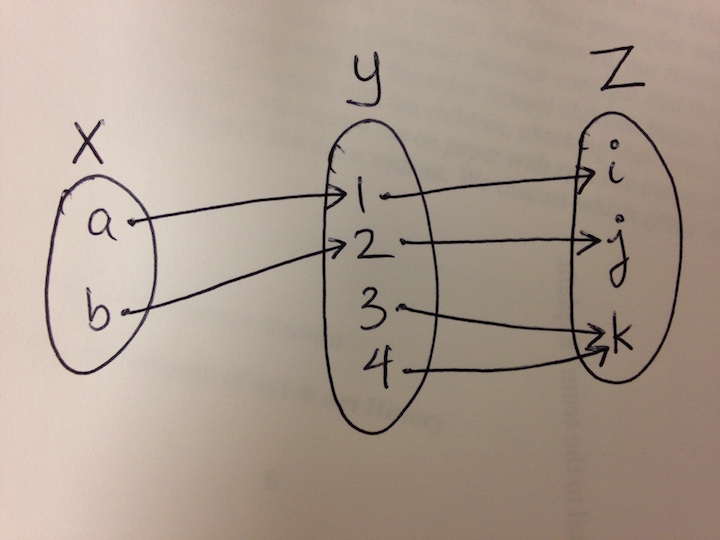 X
a
b
y
1
2
3
4
Z
i
j
k